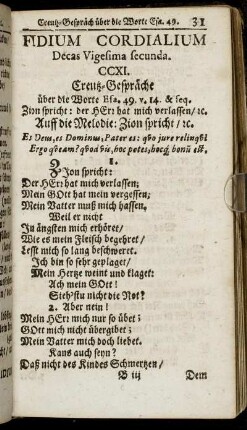 Creutz-Gespräch über die Worte Esa. 49. 31
FIDIUM CORDIALIUM
Decas Vigesima secunda.
CCXI.
Creutz-Gespräche
über die Worte Esa. 49. v. 14. & seq.
Zion spricht: der HErr hat mich verlassen/ ꝛc.
Auff die Melodie: Zion spricht/ ꝛc.
Es Deus, es Dominus, Pater es: quo jure relinqvi
Ergo queam? quod vis, hoc potes, hocq; bonũ est.
1.
Zion spricht:
Der HErr hat mich verlassen;
Mein GOtt hat mein vergessen;
Mein Vatter muß mich hassen,
Weil er nicht
In ängsten mich erhöret/
Wie es mein Fleisch begehret/
Lesst mich so lang beschweret.
Ich bin so sehr geplaget/
Mein Hertze weint und klaget:
Ach mein GOtt!
Sieh'stu nicht die Not?
2. Aber nein!
Mein HErr mich nur so übet;
GOtt mich nicht übergibet;
Mein Vatter mich doch liebet.
Kans auch seyn?
Daß nicht des Kindes Schmertzen/
B iij Dem